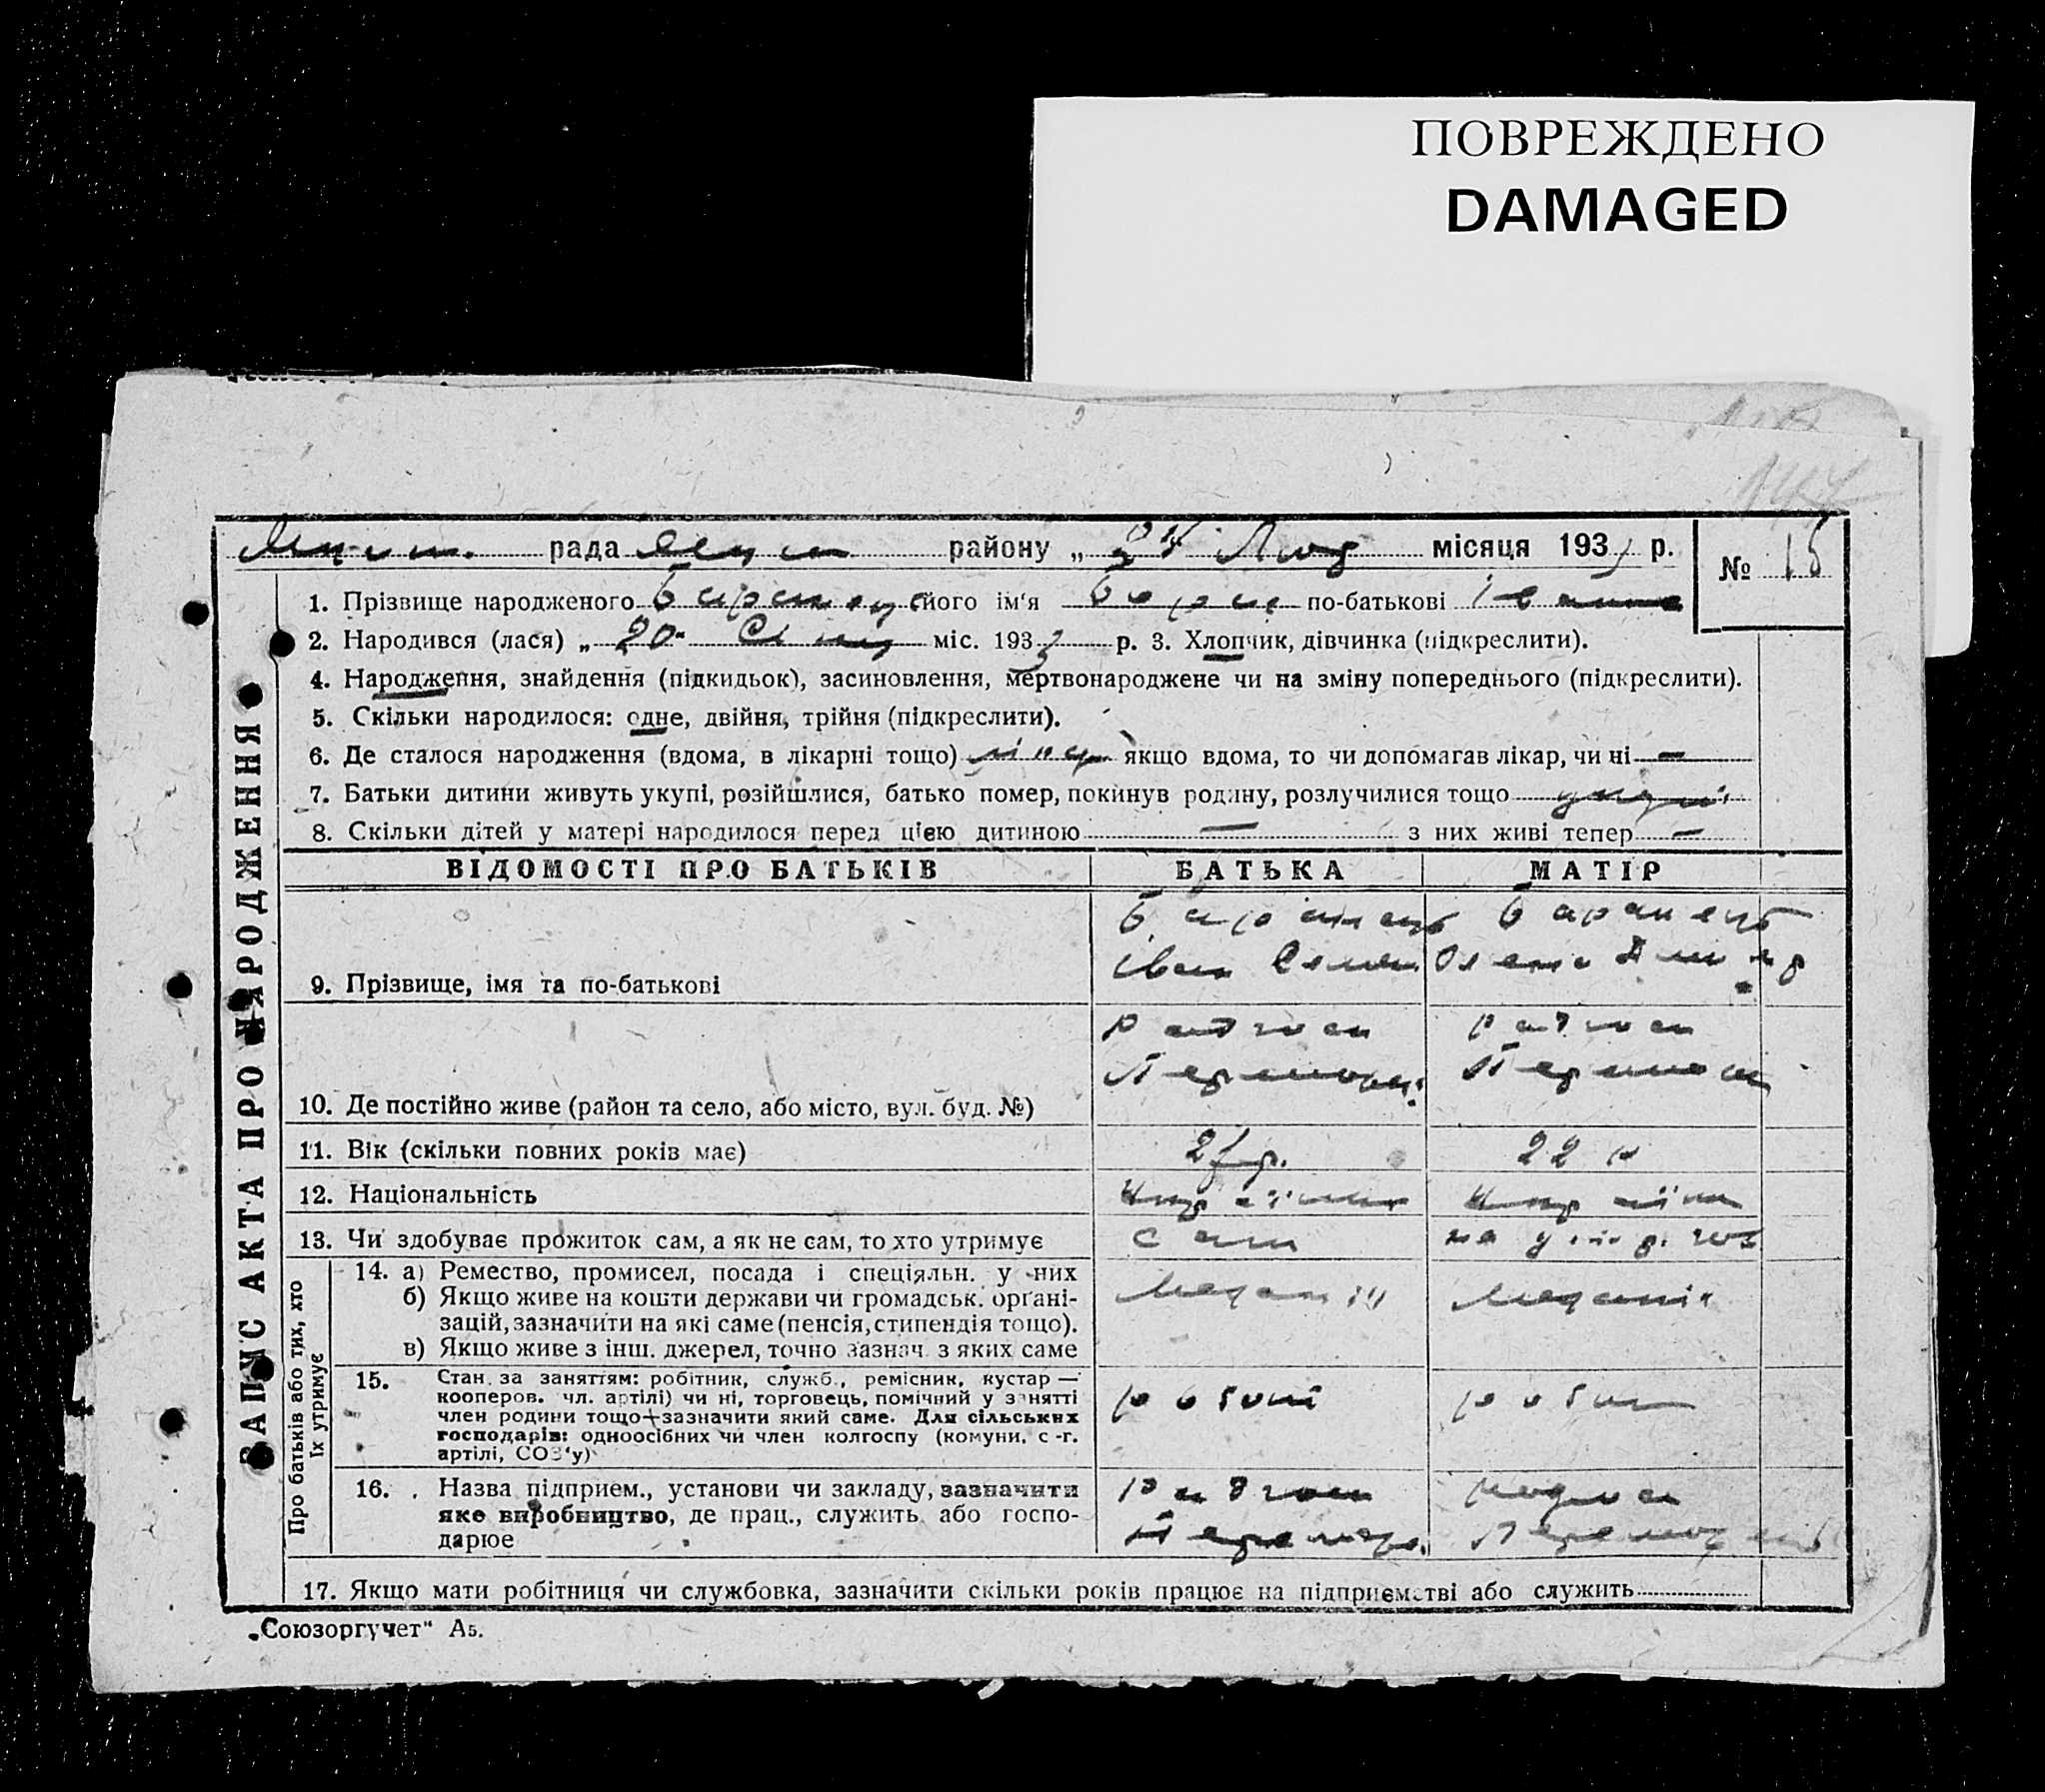 ПОВРЕЖДЕНО
DAMAGED
рада району „ 24 Лют місяця 193 р. № 15
1. Прізвище народженого Баранець його ім'я Борис по-батькові Іванов
2. Народився (лася) „ 20 Січня міс. 193 р. 3. Хлопчик, дівчинка (підкреслити).
4. Народження, знайдення (підкидьок), засиновлення, мертвонароджене чи на зміну попереднього (підкреслити).
5. Скільки народилося: одне, двійня, трійня (підкреслити).
6. Де сталося народження (вдома, в лікарні тощо) якщо вдома, то чи допомагав лікар, чи ні —
7. Батьки дитини живуть укупі, розійшлися, батько помер, покинув родину, розлучилися тощо укупі
8. Скільки дітей у матері народилося перед цією дитиною — з них живі тепер —
ВІДОМОСТІ ПРО БАТЬКІВ БАТЬКА МАТІР
Баранець Баранець
9. Прізвище, імя та по-батькові Іван Семен Олена Дмитр
Радгосп Радгосп
10. Де постійно живе (район та село, або місто, вул. буд. №)
11. Вік (скільки повних років має) 22
12. Національність Українець Українка
13. Чи здобуває прожиток сам, а як не сам, то хто утримує сам
Про батьків або тих, хто їх утримує
14. а) Ремество, промисел, посада і спеціяльн. у них Механік Механік
б) Якщо живе на кошти держави чи громадськ. органі-
зацій, зазначити на які саме (пенсія, стипендія тощо).
в) Якщо живе з інш. джерел, точно зазнач. з яких саме
15. Стан за заняттям: робітник, служб., ремісник, кустар —
кооперов. чл. артілі) чи ні, торговець, помічний у занятті
член родини тощо—зазначити який саме. Для сільських
господарів: одноосібних чи член колгоспу (комуни, с.-г.
артілі, СОЗ'у)
робіт робіт
16. Назва підприєм., установи чи закладу, зазначити Радгосп Радгосп
яке виробництво, де прац., служить або госпо-
дарює
17. Якщо мати робітниця чи службовка, зазначити скільки років працює на підприємстві або служить
ЗАПИС АКТА ПРО НАРОДЖЕННЯ
„Союзоргучет“ А5.